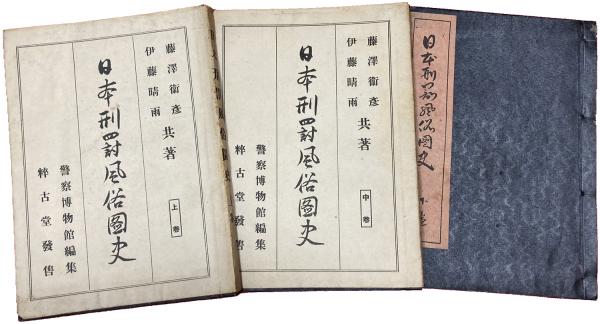 藤澤衞彦
伊藤晴雨
共著
日本刑罸風俗圖史
上卷
警察博物館編集
粹古堂發售
藤澤衞彦
伊藤晴雨
共著
日本刑罸風俗圖史
中卷
警察博物館編集
粹古堂發售
日本刑罸風俗圖史